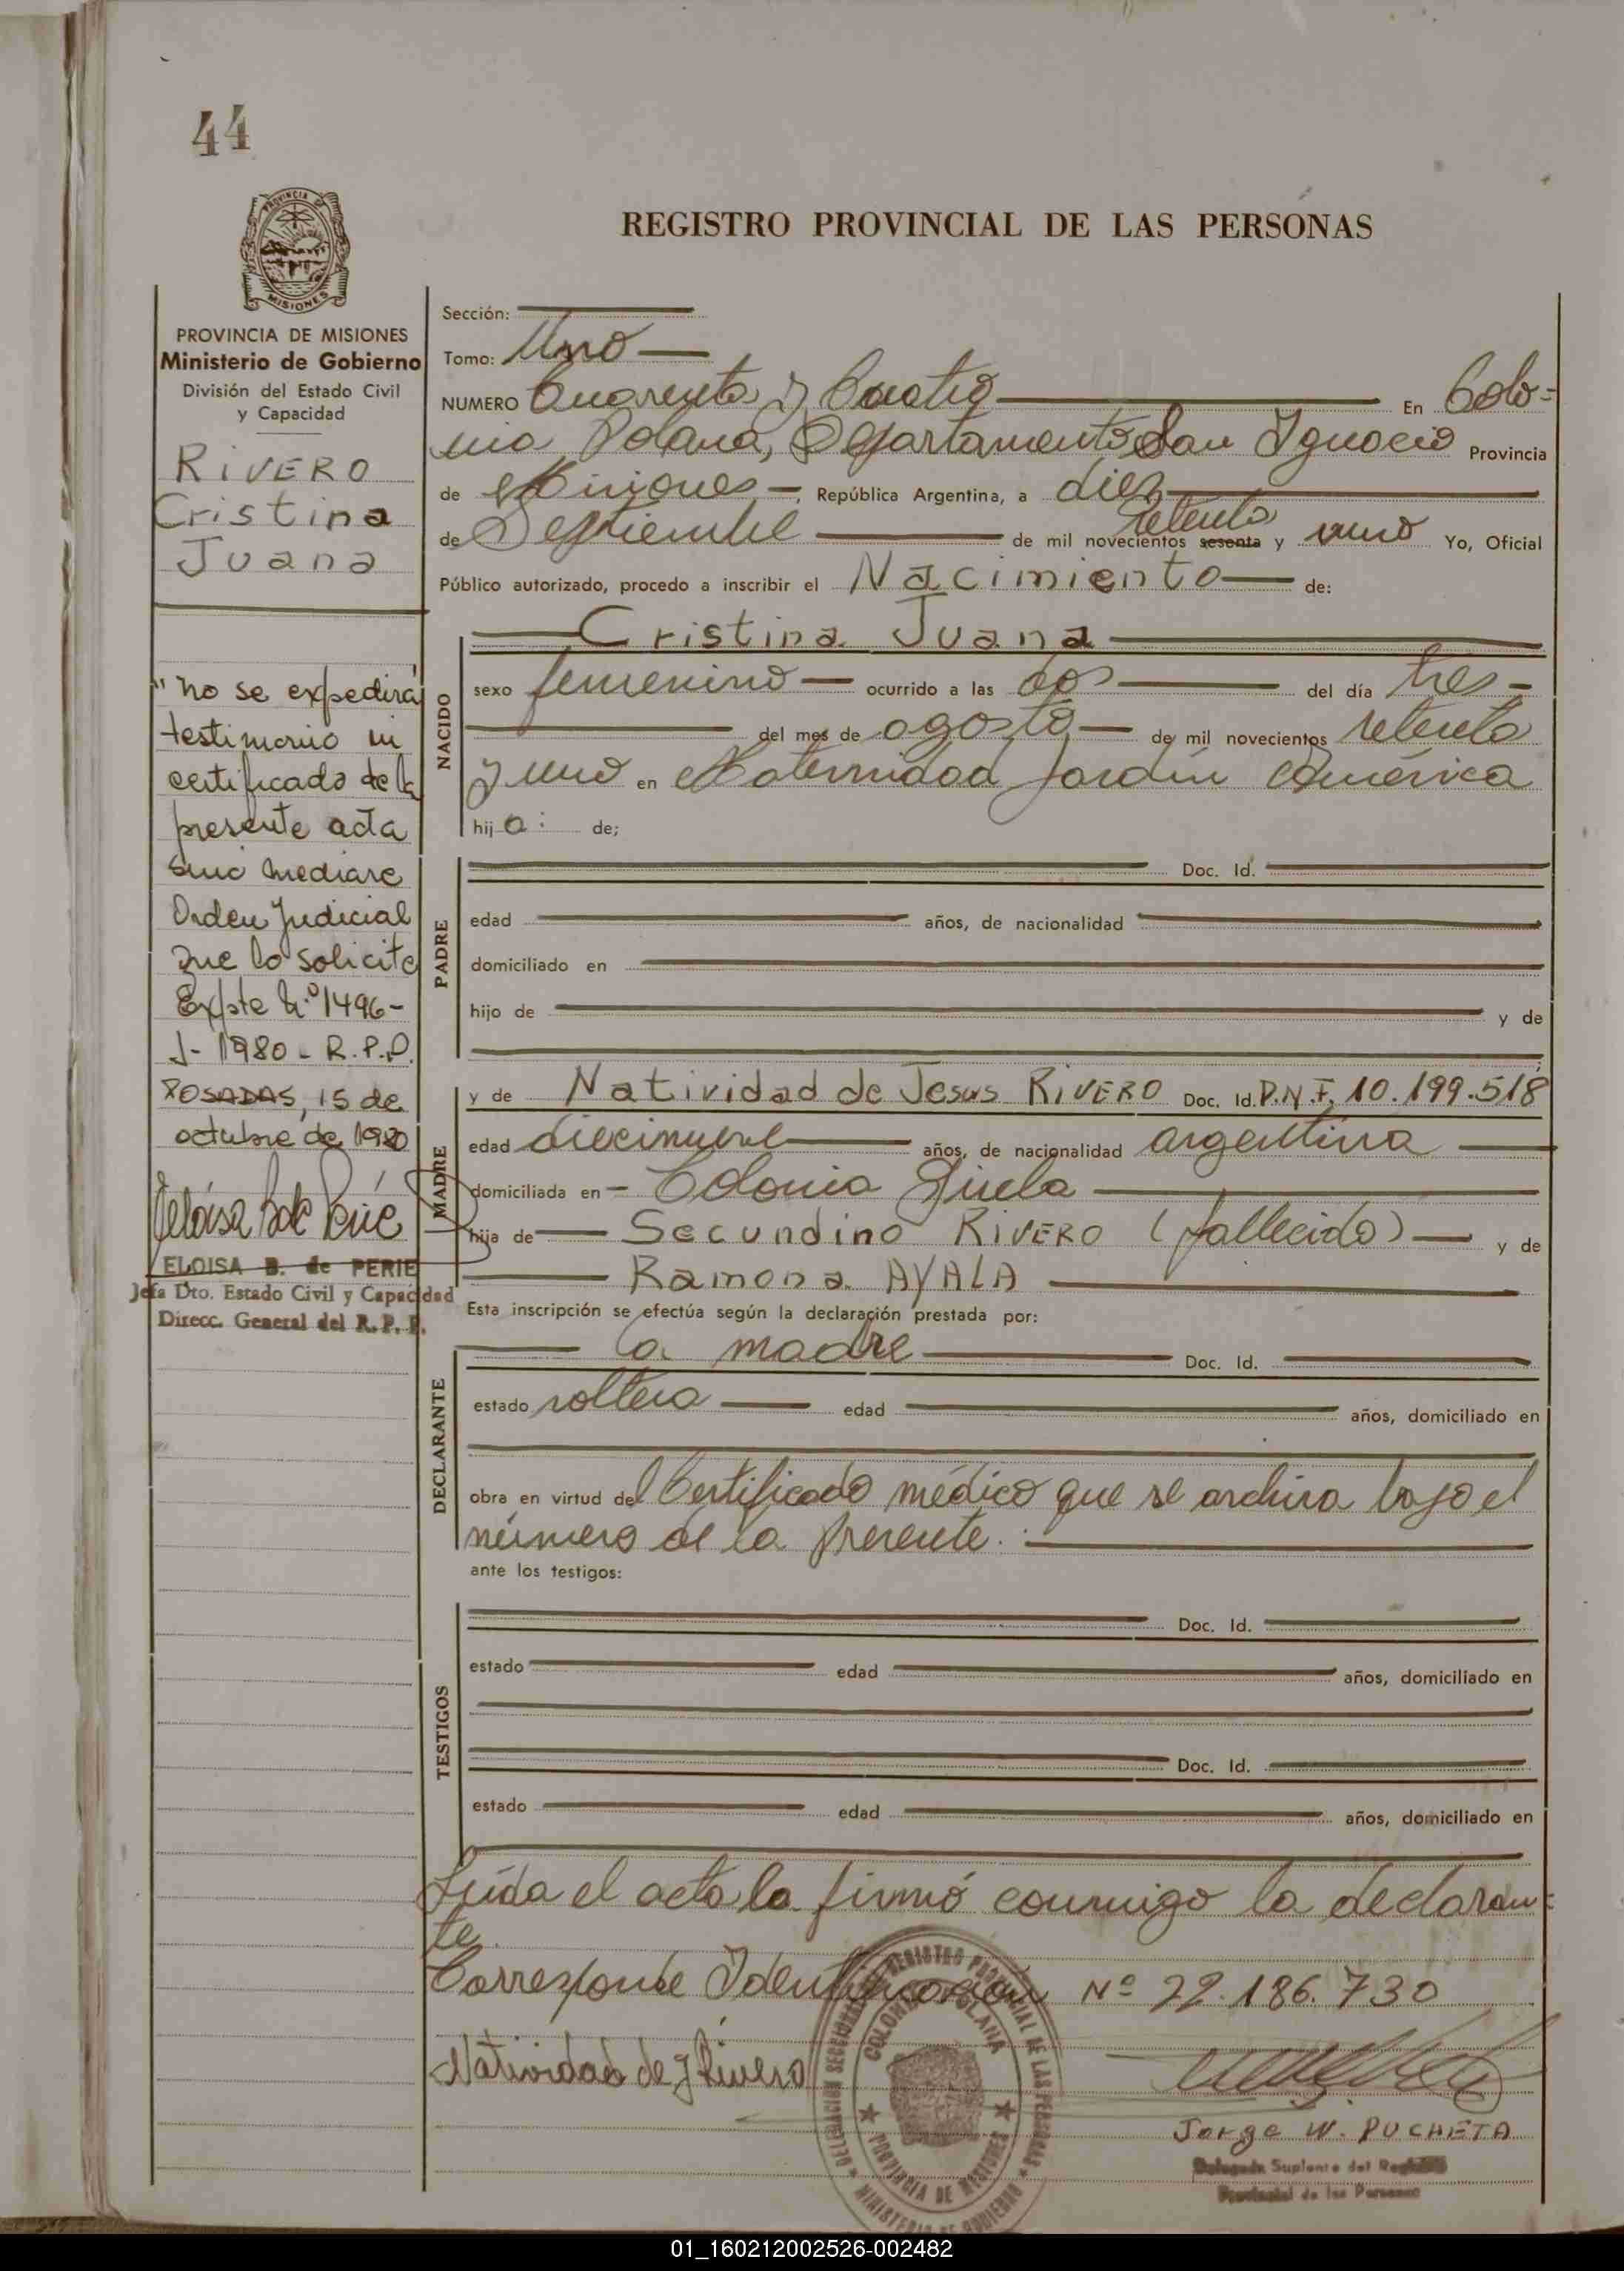 44
PROVINCIA DE MISIONES
REGISTRO PROVINCIAL DE LAS PERSONAS
PROVINCIA DE MISIONES
Ministerio de Gobierno
División del Estado Civil
y Capacidad
RIVERO
Cristina
Juana
"no se expedirá
testimonio ni
certificado de la
presente acta
sino mediare
Orden Judicial
que lo solicite
Expte N.º 1496-
J- 1980 - R.P.P.
POSADAS, 15 de
octubre de 1980
ELOISA B. de PERIE
Jefa Dto. Estado Civil y Capacidad
Direcc. General del R. P. P.
Sección:
Tomo: Uno
NUMERO Cuarenta y Cuatro En Colo=
nia Polana, Departamento San Ignacio Provincia
de Misiones, República Argentina, a diez
de Septiembre de mil novecientos sesenta setenta y uno Yo, Oficial
Público autorizado, procedo a inscribir el Nacimiento de:
NACIDO
Cristina Juana
sexo femenino ocurrido a las dos del día tres
del mes de agosto de mil novecientos setenta
y uno en Maternidad Jardín América
hija: de;
PADRE
Doc. Id.
edad años, de nacionalidad
domiciliado en
hijo de y de
MADRE
y de Natividad de Jesus RIVERO Doc. Id. D.N.I. 10.199.518
edad diecinueve años, de nacionalidad argentina
domiciliada en Colonia
hija de Secundino RIVERO (fallecido) y de
Ramona AYALA
Esta inscripción se efectúa según la declaración prestada por:
DECLARANTE
la madre Doc. Id.
estado soltera edad años, domiciliado en
obra en virtud del Certificado médico que se archiva bajo el
número de la presente.
ante los testigos:
TESTIGOS
Doc. Id.
estado edad años, domiciliado en
Doc. Id.
estado edad años, domiciliado en
Leída el acta la firmó conmigo la declaran=
te.
Corresponde Identificación Nº 22.186.730
Natividad de J Rivero
DELEGACION SECCIONAL REGISTRO PROVINCIAL DE LAS PERSONAS
COLONIA POLANA
PROVINCIA DE MISIONES
MINISTERIO DE GOBIERNO
Jorge W. PUCHETA
Delegado Suplente del Registro
Provincial de las Personas
01_160212002526-002482